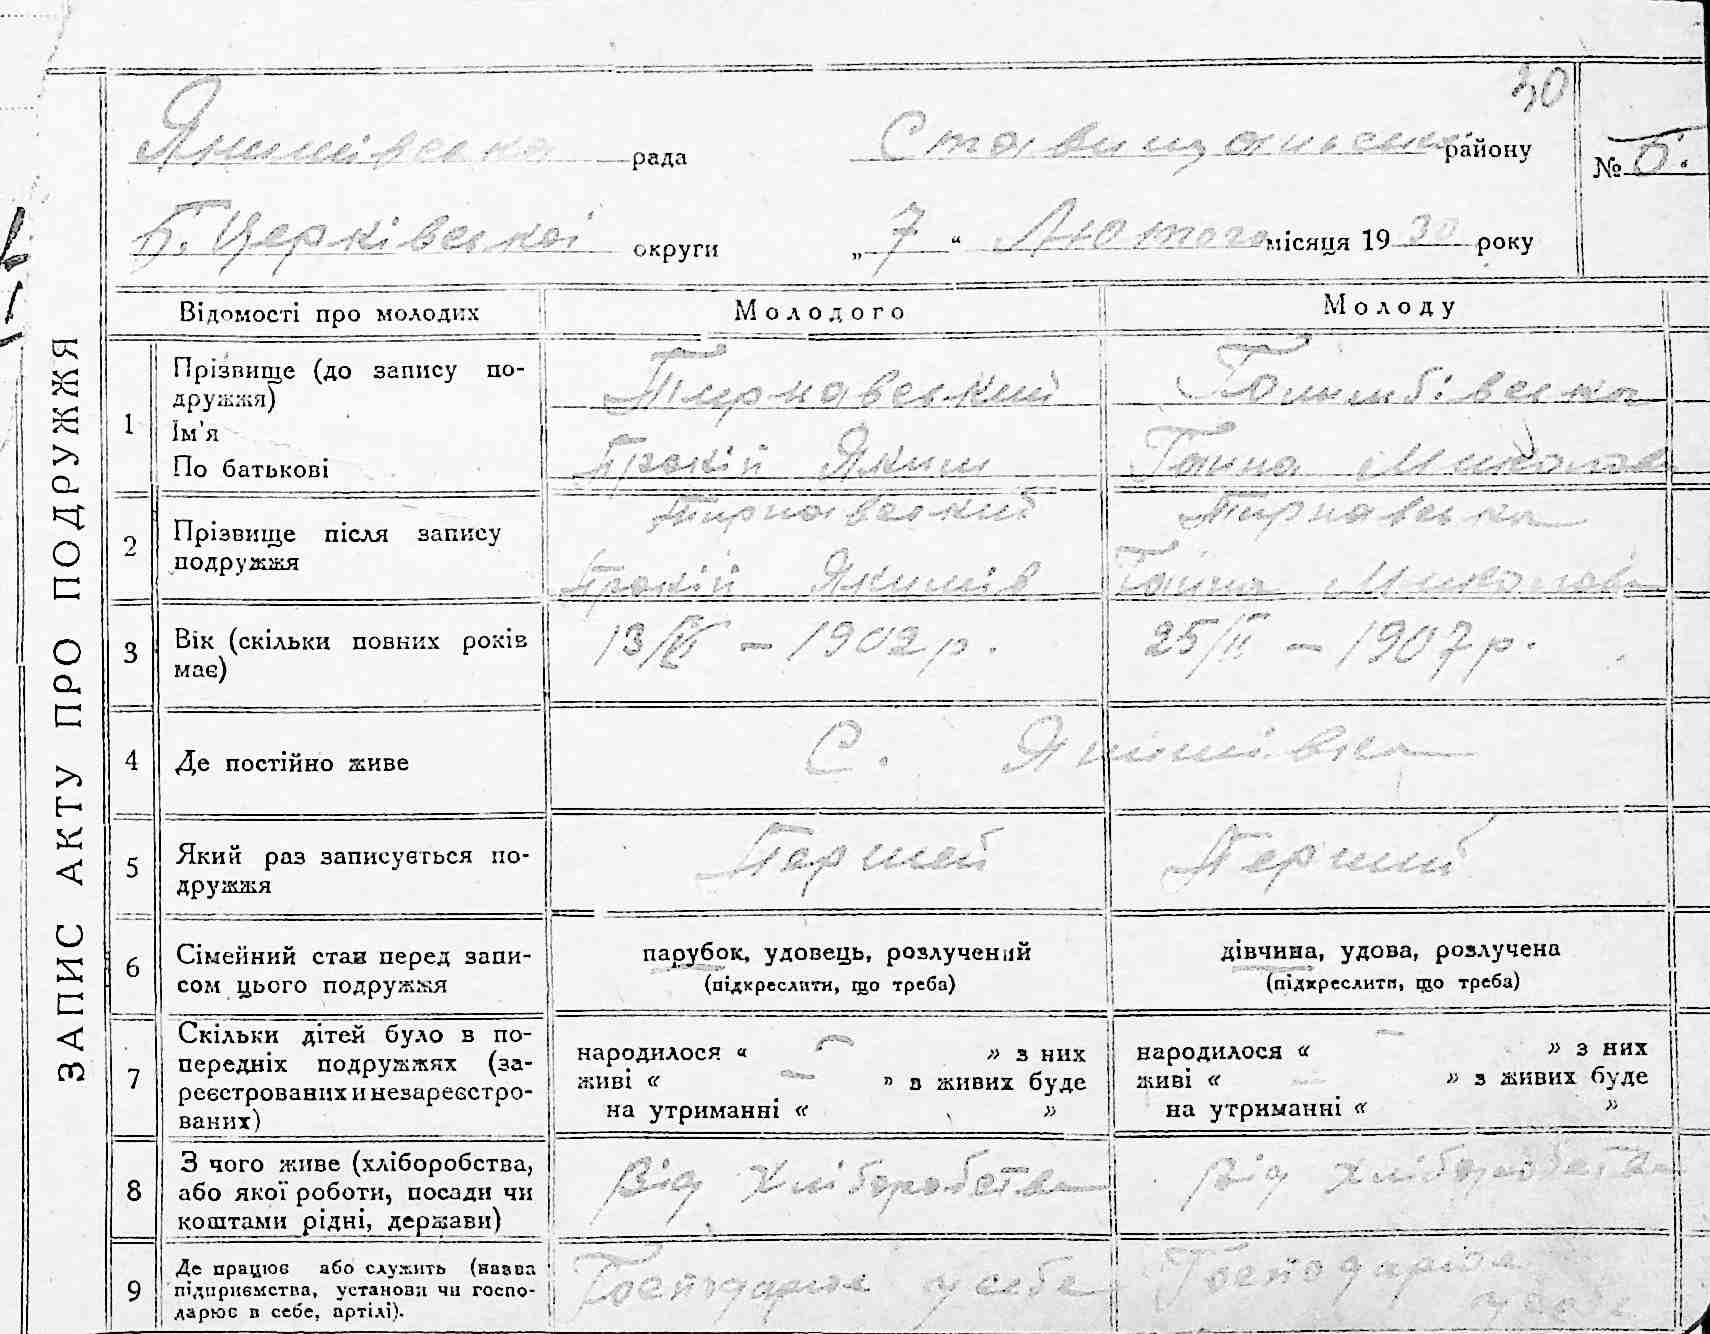 30
Янишівська рада Ставищанського району № 6.
Б. Церківської округи „7“ Лютого місяця 1930 року
ЗАПИС АКТУ ПРО ПОДРУЖЖЯ
Відомості про молодих Молодого Молоду
1 Прізвище (до запису подружжя) Тирнавський Голимбівська
Ім'я
По батькові Прокій Яким Ганна Миколаєва
2 Прізвище після запису подружжя Тирнавський Тирнавська
Прокій Якимів Ганна Миколаєва
3 Вік (скільки повних років має) 13/VI – 1902 р. 25/II – 1907 р.
4 Де постійно живе С. Янишівка
5 Який раз записується подружжя Першей Перший
6 Сімейний стан перед записом цього подружжя парубок, удовець, розлучений дівчина, удова, розлучена
(підкреслити, що треба) (підкреслити, що треба)
7 Скільки дітей було в попередніх подружжях (зареєстрованих и незареєстрованих)
народилося « – » з них народилося « – » з них
живі « – » в живих буде живі « – » з живих буде
на утриманні « » на утриманні « »
8 З чого живе (хліборобства, або якої роботи, посади чи коштами рідні, держави) Від хліборобства Від хліборобства
9 Де працює або служить (назва підприємства, установи чи господарює в себе, артілі). Господарює у себе Господарює у себе